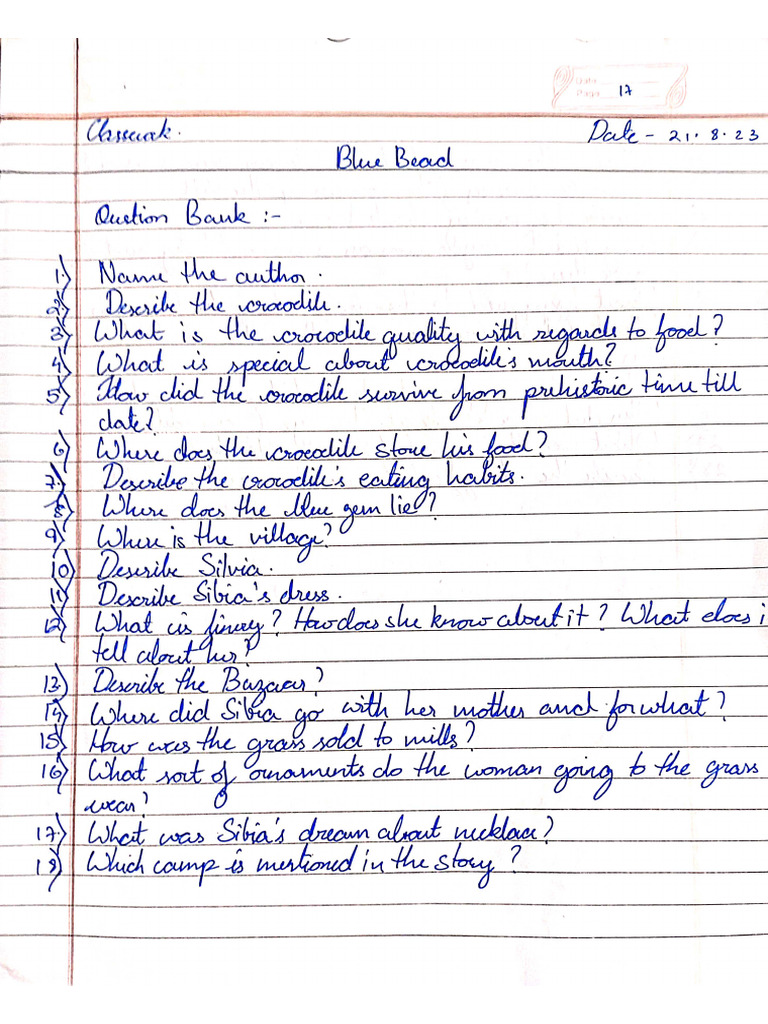 Date
Page 17
Classwork.
Date - 21.8.23
Blue Bead
Qustion Bank :-
1) Name the author.
2) Describe the crocodile.
3) What is the crocodile quality with regards to food?
4) What is special about crocodile's mouth?
5) How did the crocodile survive from prehistoric time till
date?
6) Where does the crocodile store his food?
7) Describe the crocodile's eating habits.
8) Where does the blue gem lie?
9) Where is the village?
10) Describe Silvia.
11) Describe Sibia's dress.
12) What is finery? How does she know about it? What does i
tell about her?
13) Describe the Bazaar?
14) Where did Sibia go with her mother and for what?
15) How was the grass sold to mills?
16) What sort of ornaments do the woman going to the grass
wear?
17) What was Sibia's dream about necklace?
18) Which camp is mentioned in the story?